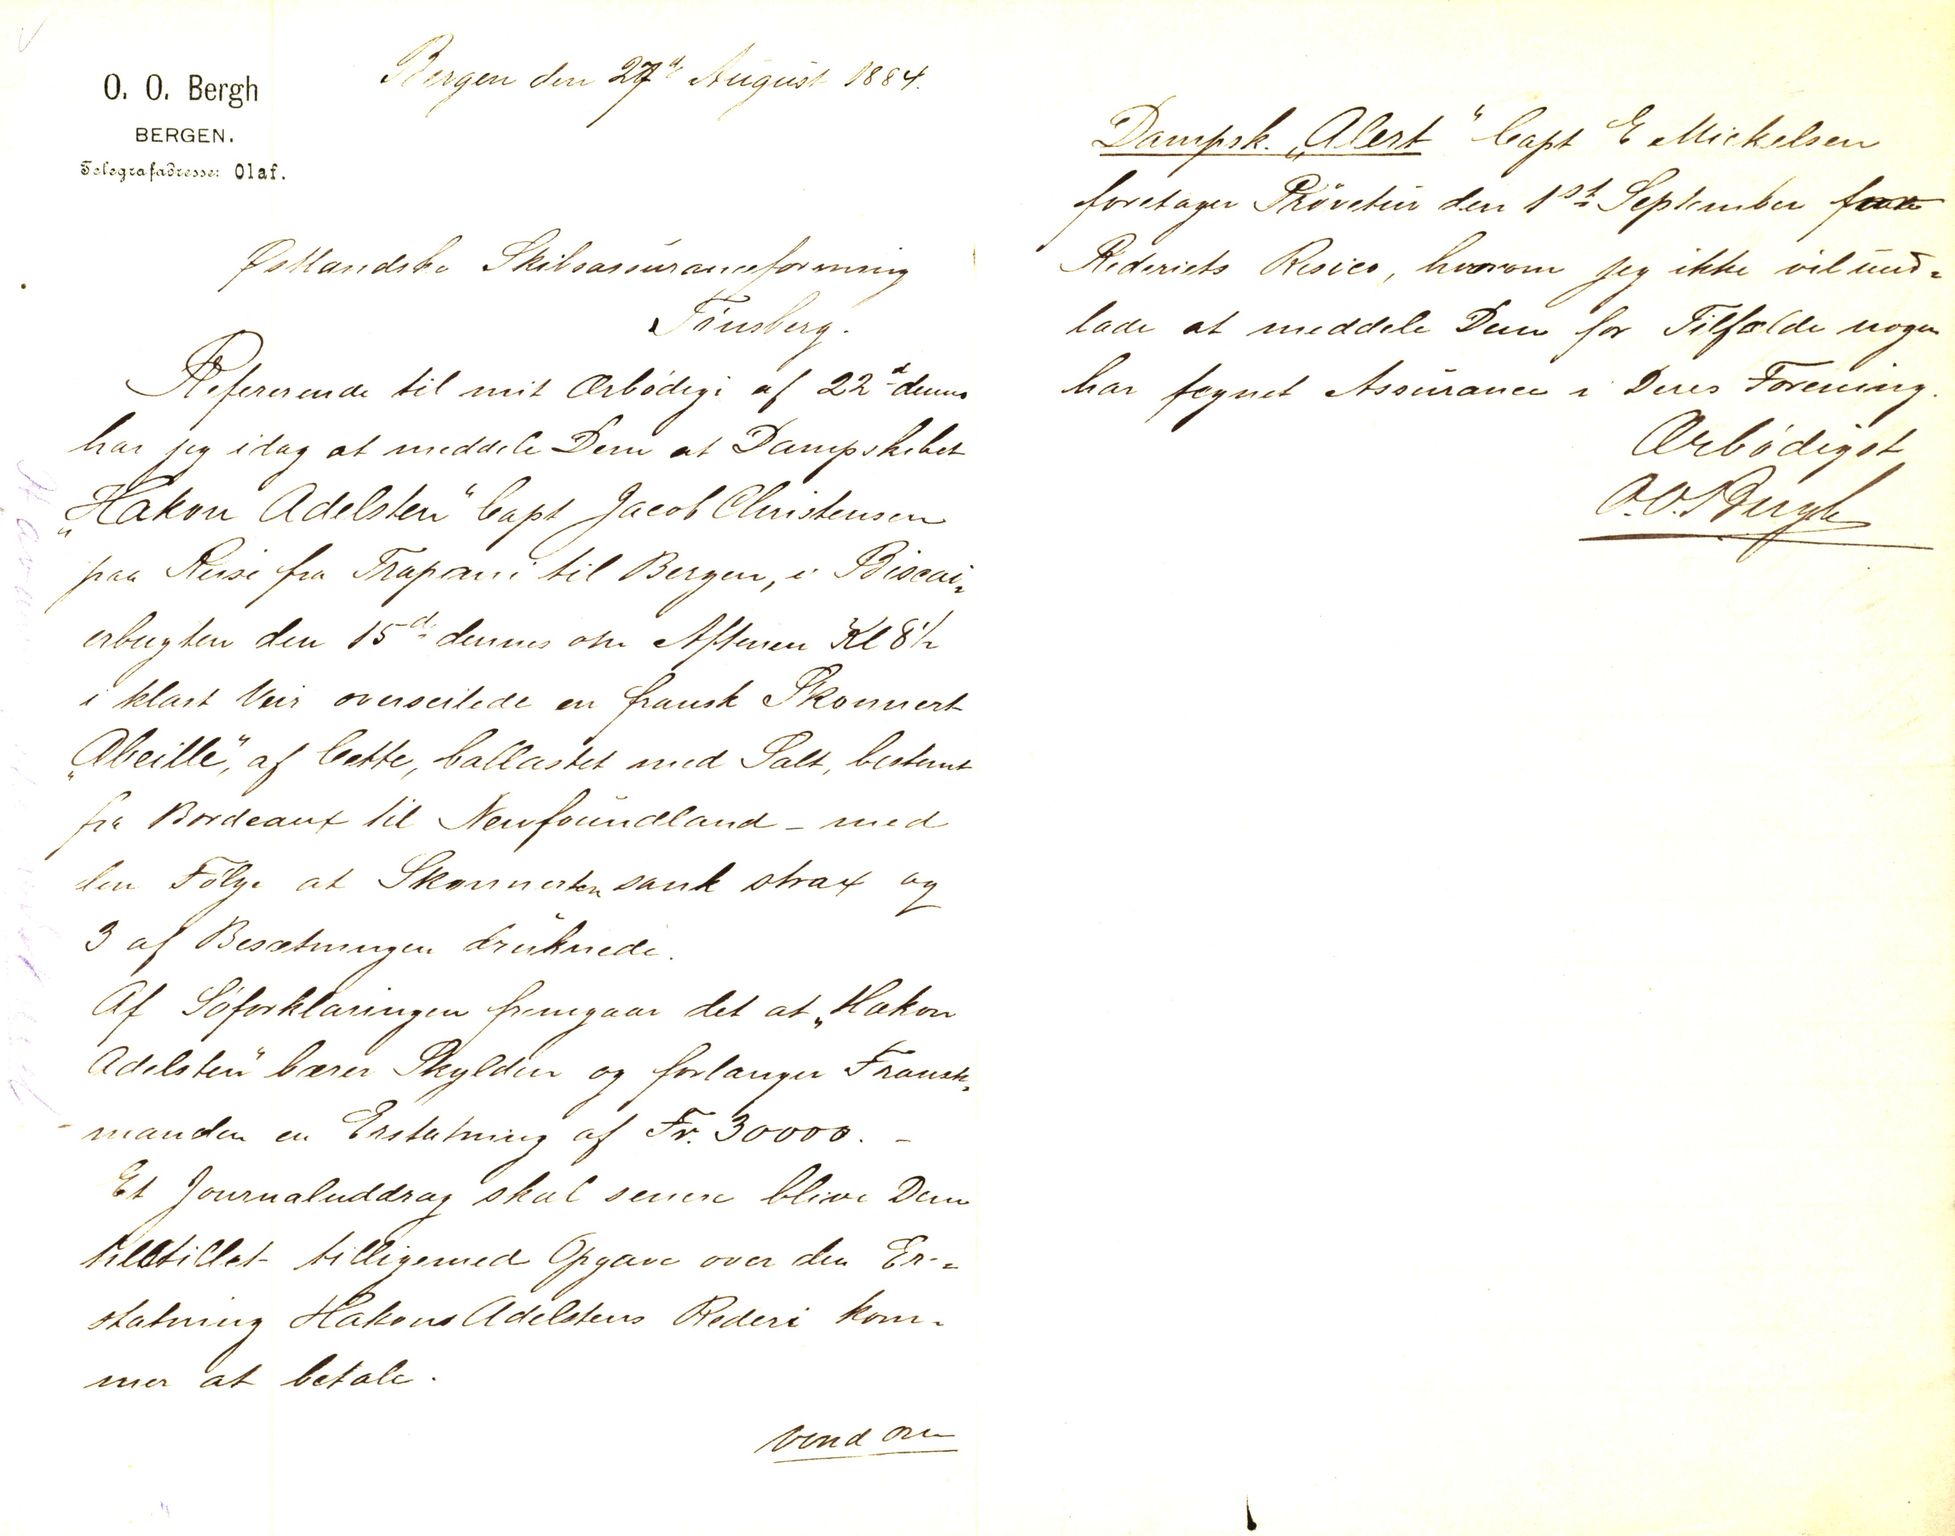 O. O. Bergh
BERGEN.
Telegrafadresse: Olaf.
Bergen den 27d August 1884.
Østlandske Skibsassuranceforening
Tønsberg.
Refererende til mit Ærbødige af 22d dennes
har jeg idag at meddele Dem at Dampskibet
„Hakon Adelsten" Capt Jacob Christensen
paa Reise fra Trapani til Bergen, i Biscai-
erbugten den 15d dennes om Aftenen Kl 8½
i klart Veir overseilede en fransk Skonnert
„Abeille", af Cette, ballastet med Salt, bestemt
fra Bordeaux til Newfoundland - med
den Følge at Skonnerten sank strax og
3 af Besætningen druknede.
Af Søforklaringen fremgaar det at „Hakon
Adelsten" bærer Skylden og forlanger Fransk-
manden en Erstatning af Fr. 30000. -
Et Journaluddrag skal senere blive Dem
tilstillet tilligemed Opgave over den Er-
statning Hakons Adelstens Rederi kom-
mer at betale.
Vend om
Dampsk. „Alert" Capt E Mickelsen
foretager Prøvetur den 1st September
Rederiets Risico, hvorom jeg ikke vil und-
lade at meddele Dem for Tilfælde nogen
har tegnet Assurance i Deres Forening.
Ærbødigst
O.O. Bergh